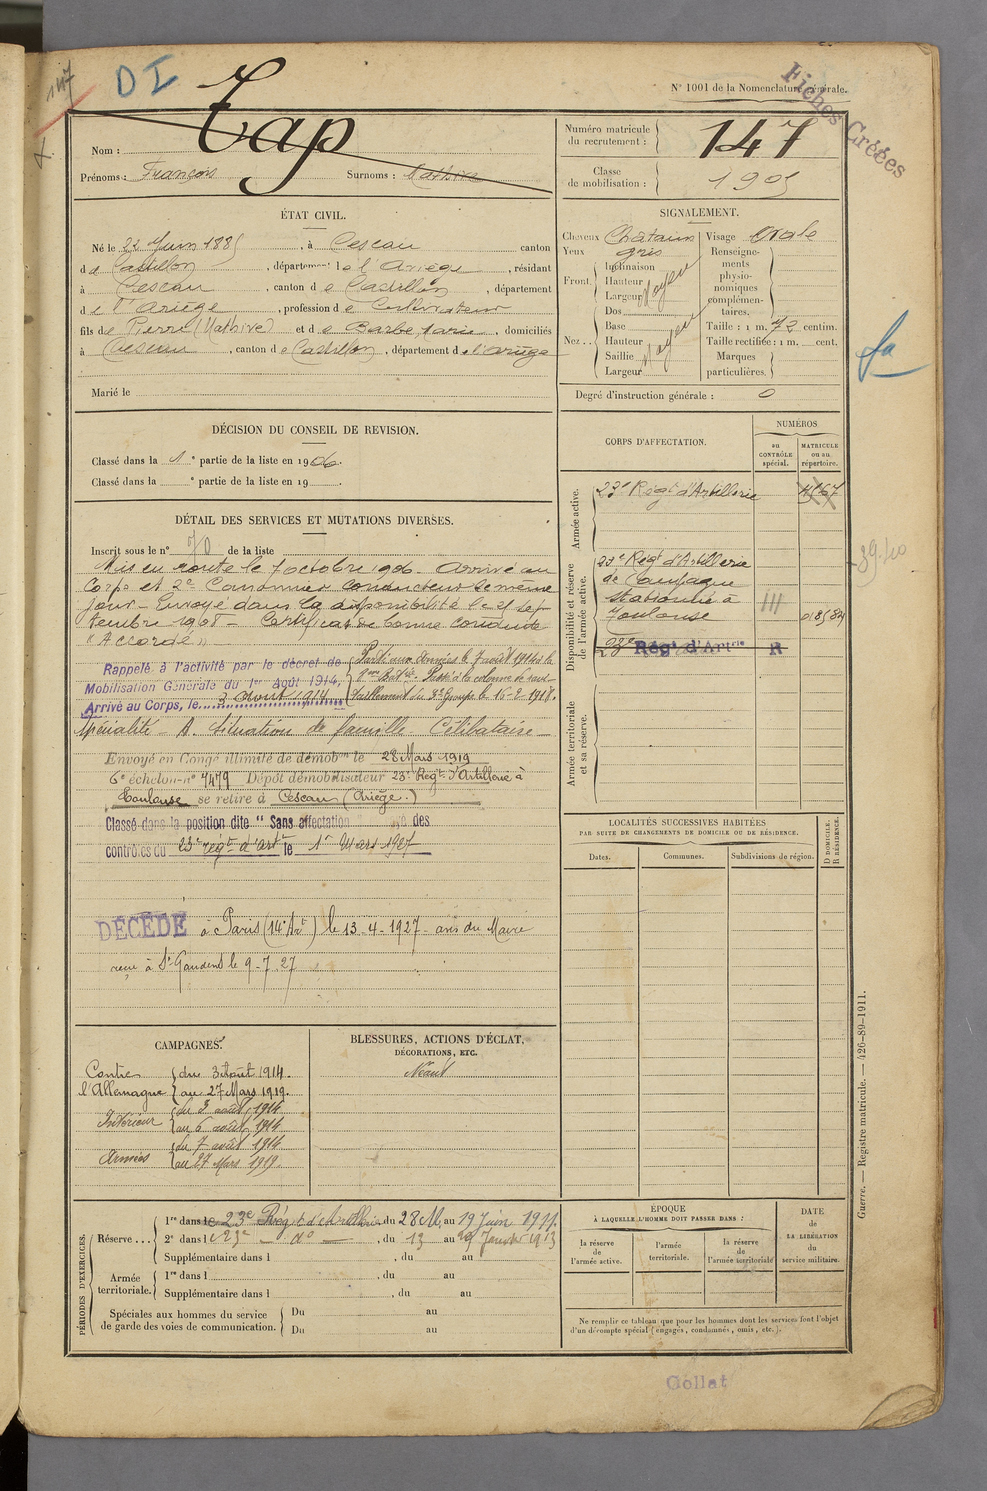 147
D I
N° 1001 de la Nomenclature générale.
Fiches Créées
Tap
Nom :
Prénoms : François Surnoms : Mathive
Numéro matricule du recrutement : 147
Classe de mobilisation : 1905
ÉTAT CIVIL.
Né le 22 Juin 1885, à Cescau canton
de Castillon, département de l'Ariège, résidant
à Cescau, canton de Castillon, département
de l'Ariège, profession de Cultivateur
fils de Pierre (Mathive) et de Barbe Marie, domiciliés
à Cescau, canton de Castillon, département de l'Ariège
Marié le
SIGNALEMENT.
Cheveux Châtains Visage Ovale
Yeux gris
Front. Inclinaison Hauteur Largeur Moyen
Nez.. Dos Base Hauteur Saillie Largeur Moyen
Renseignements physionomiques complémentaires.
Taille : 1 m. 72 centim.
Taille rectifiée : 1 m. cent.
Marques particulières.
Degré d'instruction générale : 0
DÉCISION DU CONSEIL DE REVISION.
Classé dans la 1e partie de la liste en 1906.
Classé dans la e partie de la liste en 19 .
CORPS D'AFFECTATION.
NUMÉROS
au CONTRÔLE spécial.
MATRICULE ou au répertoire.
Armée active.
23e Régt d'Artillerie
Disponibilité et réserve de l'armée active.
23e Régt d'Artillerie
de Campagne
stationné à
Toulouse
III
23e Régt d'Artie R
Armée territoriale et sa réserve.
DÉTAIL DES SERVICES ET MUTATIONS DIVERSES.
Inscrit sous le n° 70 de la liste
Mis en route le 7 octobre 1906. Arrivé au
Corps et 2e Canonnier conducteur le même
jour - Envoyé dans la disponibilité le 25 sep-
tembre 1908 - Certificat de bonne conduite
"Accordé"
Rappelé à l'activité par le décret de
Mobilisation Générale du 1er Août 1914,
Arrivé au Corps, le 3 août 1914
Parti aux Armées le 7 août 1914 à la
Passé à la colonne de ravi-
taillement du 3e Groupe le 16-2-1918.
Spécialité - A. Situation de famille Célibataire -
Envoyé en Congé illimité de démobon le 28 Mars 1919
6e échelon n° 7479 Dépôt démobilisateur 23e Régt d'Artillerie à
Toulouse se retire à Cescau (Ariège.)
Classé dans la position dite "Sans affectation" rayé des
contrôles du 23e régt d'arte le 1er Mars 1927
DÉCÉDÉ à Paris (14e Art) le 13-4-1927 - avis du Maire
reçu à St Gaudens le 9-7 27
LOCALITÉS SUCCESSIVES HABITÉES
PAR SUITE DE CHANGEMENTS DE DOMICILE OU DE RÉSIDENCE.
Dates. Communes. Subdivisions de région.
D DOMICILE. R RÉSIDENCE.
CAMPAGNES.
Contre l'Allemagne du 3 Août 1914. au 27 Mars 1919.
Intérieur du 3 août 1914 au 6 août 1914
Armées du 7 août 1914 au 27 Mars 1919.
BLESSURES, ACTIONS D'ÉCLAT,
DÉCORATIONS, ETC.
Néant
PÉRIODES D'EXERCICES.
Réserve ... 1re dans le 23e Régt d'Artillerie du 28 M. au 19 juin 1911.
2e dans l e 23e do, du 13 au 29 Janvier 1913
Supplémentaire dans l , du au
Armée territoriale. 1re dans l , du au
Supplémentaire dans l , du au
Spéciales aux hommes du service de garde des voies de communication. Du au
Du au
ÉPOQUE
À LAQUELLE L'HOMME DOIT PASSER DANS :
la réserve de l'armée active.
l'armée territoriale.
la réserve de l'armée territoriale
DATE de LA LIBÉRATION du service militaire.
Ne remplir ce tableau que pour les hommes dont les services font l'objet
d'un décompte spécial (engagés, condamnés, omis, etc.).
Guerre. — Registre matricule. — 426-89-1911.
Gollat